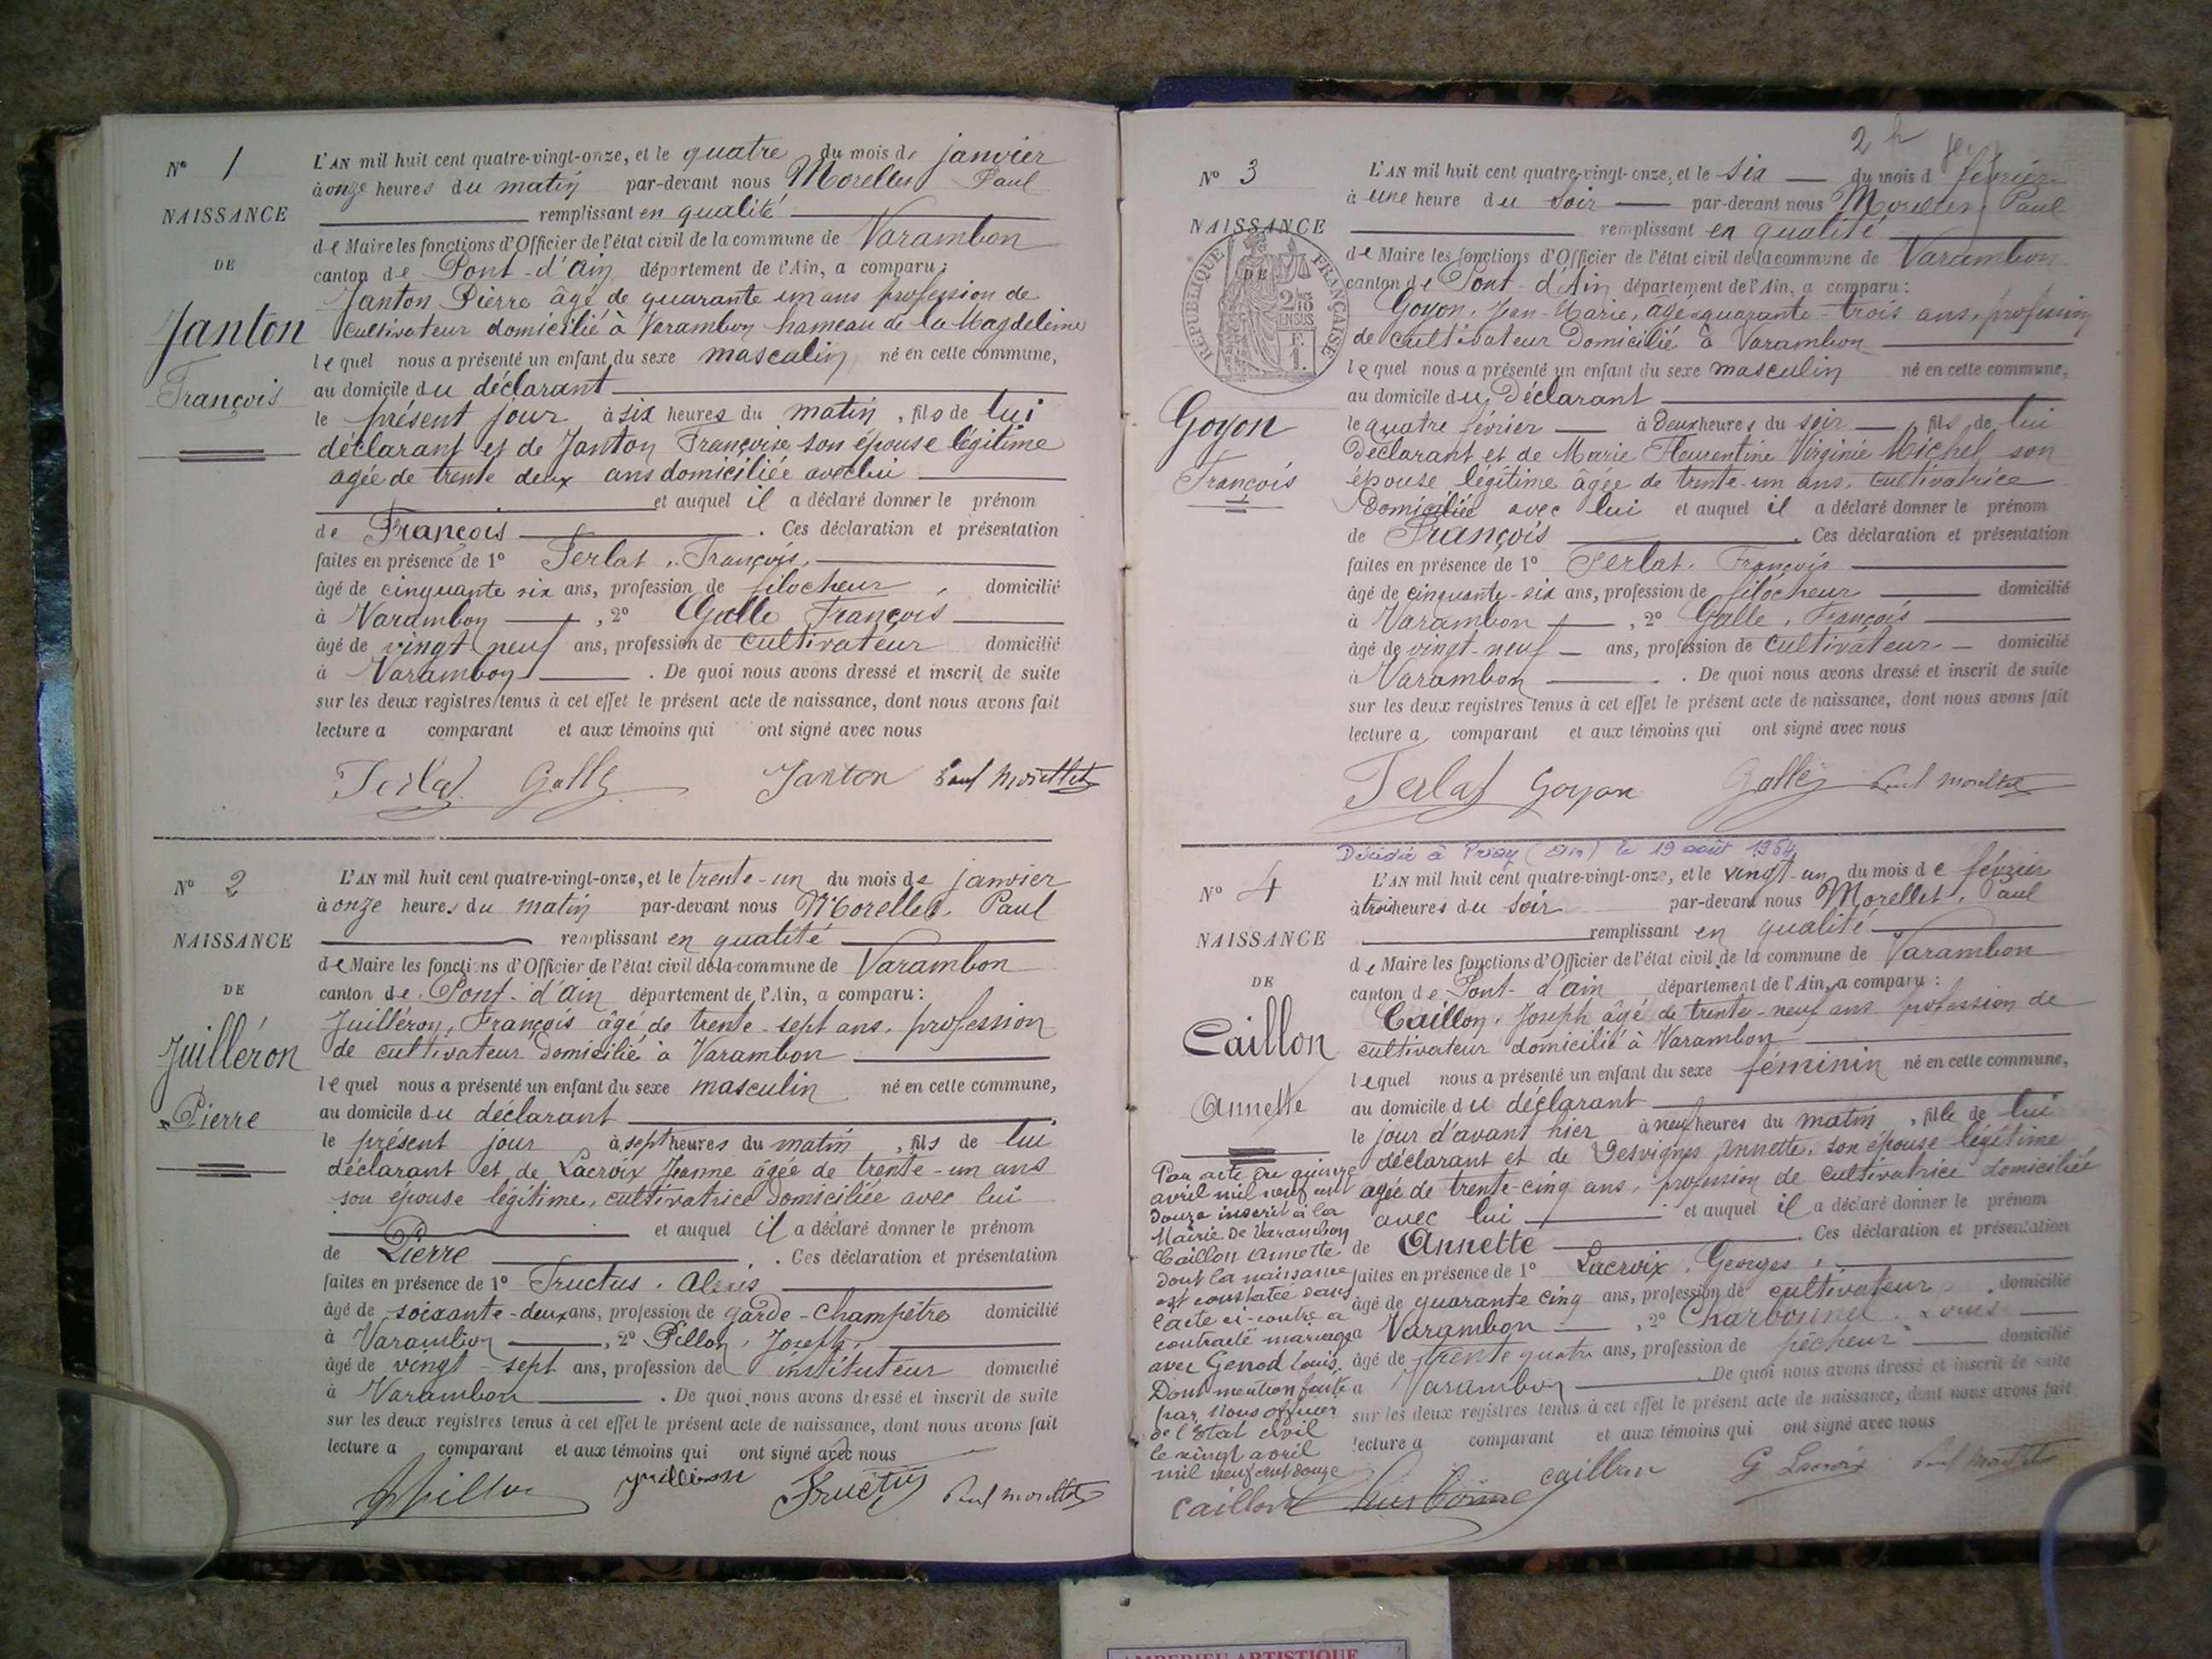 N° 1
NAISSANCE
DE
Janton
François
L'AN mil huit cent quatre-vingt-onze, et le quatre du mois de janvier
à onze heures du matin par-devant nous Morellet Paul
remplissant en qualité
de Maire les fonctions d'Officier de l'état civil de la commune de Varambon
canton de Pont-d'Ain département de l'Ain, a comparu :
Janton Pierre âgé de quarante un ans profession de
cultivateur domicilié à Varambon hameau de la Magdeleine
lequel nous a présenté un enfant du sexe masculin né en cette commune,
au domicile du déclarant
le présent jour à six heures du matin, fils de lui
déclarant et de Janton Françoise son épouse légitime
agée de trente deux ans domiciliée avec lui
et auquel il a déclaré donner le prénom
de François . Ces déclaration et présentation
faites en présence de 1° Ferlat, François,
âgé de cinquante six ans, profession de filocheur, domicilié
à Varambon , 2° Galle François
âgé de vingt neuf ans, profession de cultivateur domicilié
à Varambon . De quoi nous avons dressé et inscrit de suite
sur les deux registres tenus à cet effet le présent acte de naissance, dont nous avons fait
lecture a comparant et aux témoins qui ont signé avec nous
Ferlat Galle Janton Paul Morellet
N° 2
NAISSANCE
DE
Juilléron
Pierre
L'AN mil huit cent quatre-vingt-onze, et le trente-un du mois de janvier
à onze heures du matin par-devant nous Morellet, Paul
remplissant en qualité
de Maire les fonctions d'Officier de l'état civil de la commune de Varambon
canton de Pont-d'Ain département de l'Ain, a comparu :
Juilléron, François âgé de trente-sept ans, profession
de cultivateur domicilié à Varambon
lequel nous a présenté un enfant du sexe masculin né en cette commune,
au domicile du déclarant
le présent jour à sept heures du matin, fils de lui
déclarant et de Lacroix Jeanne âgée de trente-un ans
son épouse légitime, cultivatrice domiciliée avec lui
et auquel il a déclaré donner le prénom
de Pierre . Ces déclaration et présentation
faites en présence de 1° Fructus, Alexis
âgé de soixante-deux ans, profession de garde-champêtre domicilié
à Varambon , 2° Pillon, Joseph,
âgé de vingt-sept ans, profession de instituteur domicilié
à Varambon . De quoi nous avons dressé et inscrit de suite
sur les deux registres tenus à cet effet le présent acte de naissance, dont nous avons fait
lecture a comparant et aux témoins qui ont signé avec nous
Juilleron Fructus Paul Morellet
2
N° 3
NAISSANCE
DE
RÉPUBLIQUE FRANÇAISE
2/10 EN SUS
F. 1.
Goyon
François
L'AN mil huit cent quatre-vingt-onze, et le six du mois d février
à une heure du soir par-devant nous Morellet, Paul
remplissant en qualité
de Maire les fonctions d'Officier de l'état civil de la commune de Varambon
canton de Pont-d'Ain département de l'Ain, a comparu :
Goyon, Jean-Marie, âgé quarante-trois ans, profession
de cultivateur domicilié à Varambon
lequel nous a présenté un enfant du sexe masculin né en cette commune,
au domicile du Déclarant
le quatre février à deux heures du soir, fils de lui
Déclarant et de Marie Fleurentine Virginie Michel son
épouse légitime âgée de trente-un ans, cultivatrice
domiciliée avec lui et auquel il a déclaré donner le prénom
de François . Ces déclaration et présentation
faites en présence de 1° Ferlat, François
âgé de cinquante-six ans, profession de filocheur domicilié
à Varambon , 2° Galle, François
âgé de vingt-neuf ans, profession de cultivateur domicilié
à Varambon . De quoi nous avons dressé et inscrit de suite
sur les deux registres tenus à cet effet le présent acte de naissance, dont nous avons fait
lecture a comparant et aux témoins qui ont signé avec nous
Ferlat Goyon Galle Paul Morellet
Décédée à Priay (Ain) le 19 août 1964
N° 4
NAISSANCE
DE
Caillon
Annette
L'AN mil huit cent quatre-vingt-onze, et le vingt-un du mois de février
à trois heures du soir par-devant nous Morellet, Paul
remplissant en qualité
de Maire les fonctions d'Officier de l'état civil de la commune de Varambon
canton de Pont-d'Ain département de l'Ain, a comparu :
Caillon, Joseph âgé de trente-neuf ans profession de
cultivateur domicilié à Varambon
lequel nous a présenté un enfant du sexe féminin né en cette commune,
au domicile du déclarant
le jour d'avant hier à neuf heures du matin, fille de lui
déclarant et de Desvignes Jennette, son épouse légitime
agée de trente-cinq ans, profession de cultivatrice domiciliée
avec lui et auquel il a déclaré donner le prénom
de Annette . Ces déclaration et présentation
faites en présence de 1° Lacroix, Georges,
âgé de quarante cinq ans, profession de cultivateur, domicilié
à Varambon , 2° Charbonnel Louis
âgé de trente quatre ans, profession de pêcheur domicilié
à Varambon . De quoi nous avons dressé et inscrit de suite
sur les deux registres tenus à cet effet le présent acte de naissance, dont nous avons fait
lecture a comparant et aux témoins qui ont signé avec nous
Par acte du quinze
avril mil neuf cent
douze inscrit à la
Mairie de Varambon
Caillon Annette
dont la naissance
est constatée dans
l'acte ci-contre a
contracté mariage
avec Genod Louis.
Dont mention faite
par Nous officier
de l'Etat civil
le vingt avril
mil neuf cent douze
Caillon Charbonnel Caillon G Lacroix Paul Morellet
AMBERIEU ARTISTIQUE